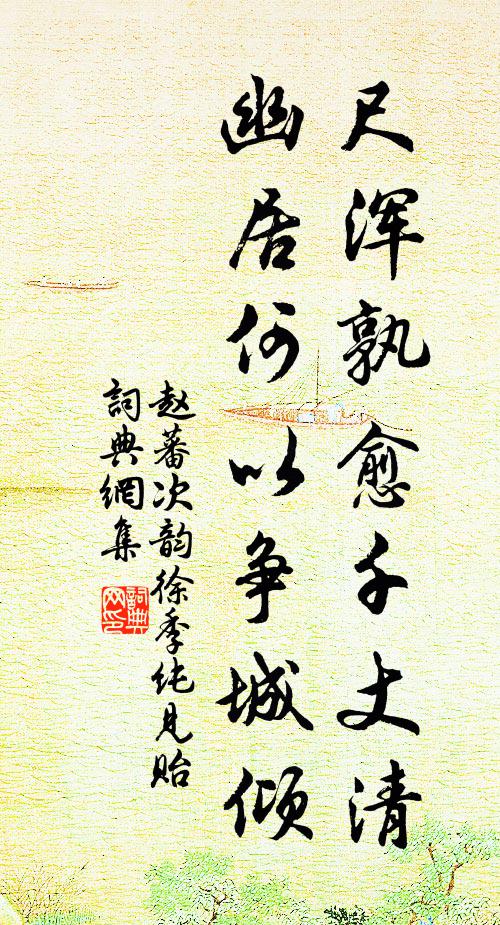 尺浑孰愈千丈清
幽居何以争城倾
赵蕃次韵徐季纯见贻
詞典網集
詞典网印